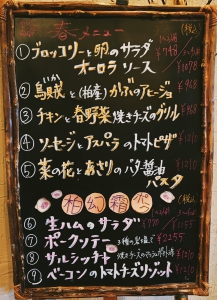 春メニュー (税込)
① ブロッコリーと卵のサラダ ¥748
オーロラソース ¥1078
② 烏賊と(柏産)かぶのアヒージョ ¥968
いか
③ チキンと春野菜焼きチーズのグリル ¥968
④ ソーセージとアスパラのトマトピザ ¥1210
⑤ 菜の花とあさりのバター醤油 ¥1210
パスタ
柏幻霜 (税込)
⑥ 生ハムのサラダ ¥770 ¥1155
⑦ ポークソテー ¥2255
⑧ サルシッチャ
⑨ ベーコンのトマトチーズリゾット ¥1210